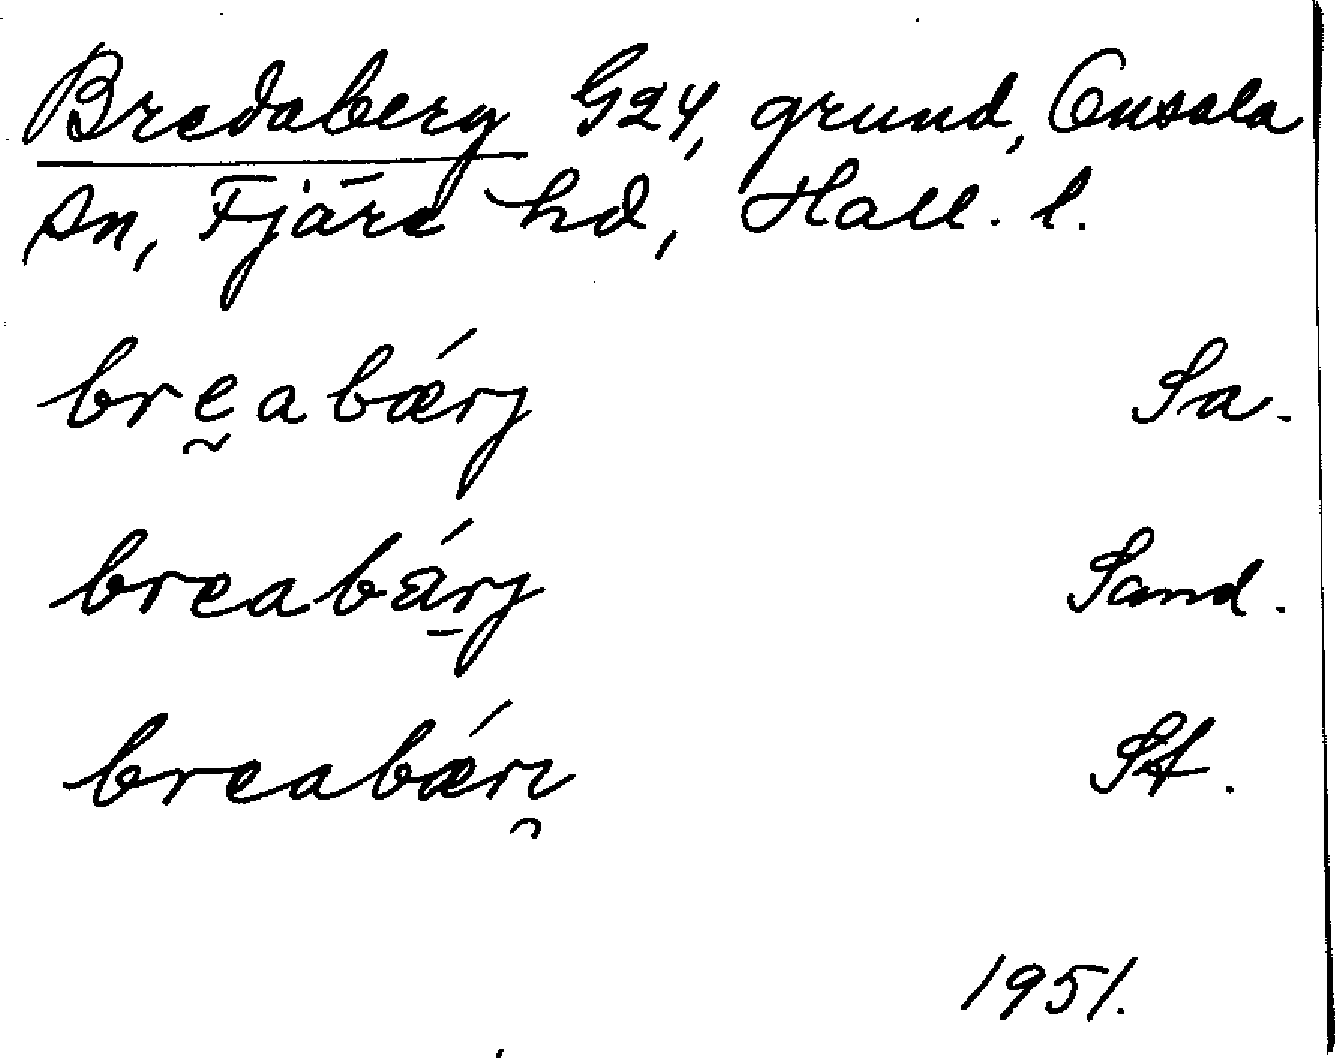 Bredaberg G24, grund, Onsala
sn, Fjäre hd, Hall. l.
brḛabǽrj Sa.
breabä́r̲j Sand.
breabǽrı St.
1951.